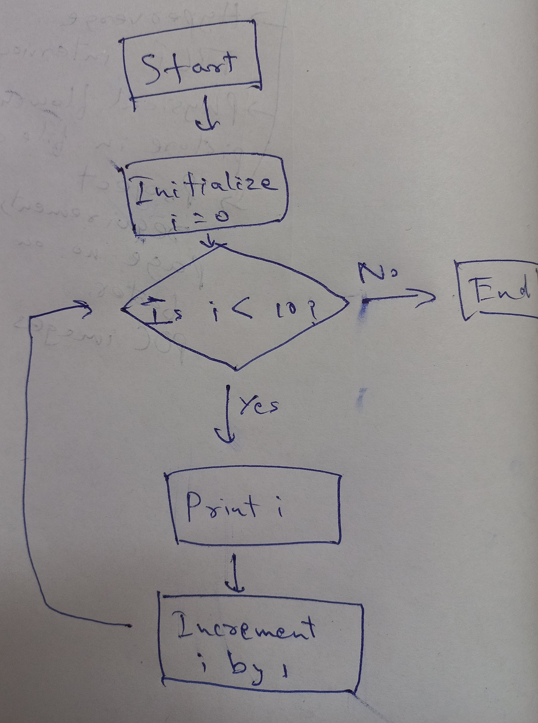 Start
Initialize
i = 0
Is i < 10?
No
End
Yes
Print i
Increment
i by 1